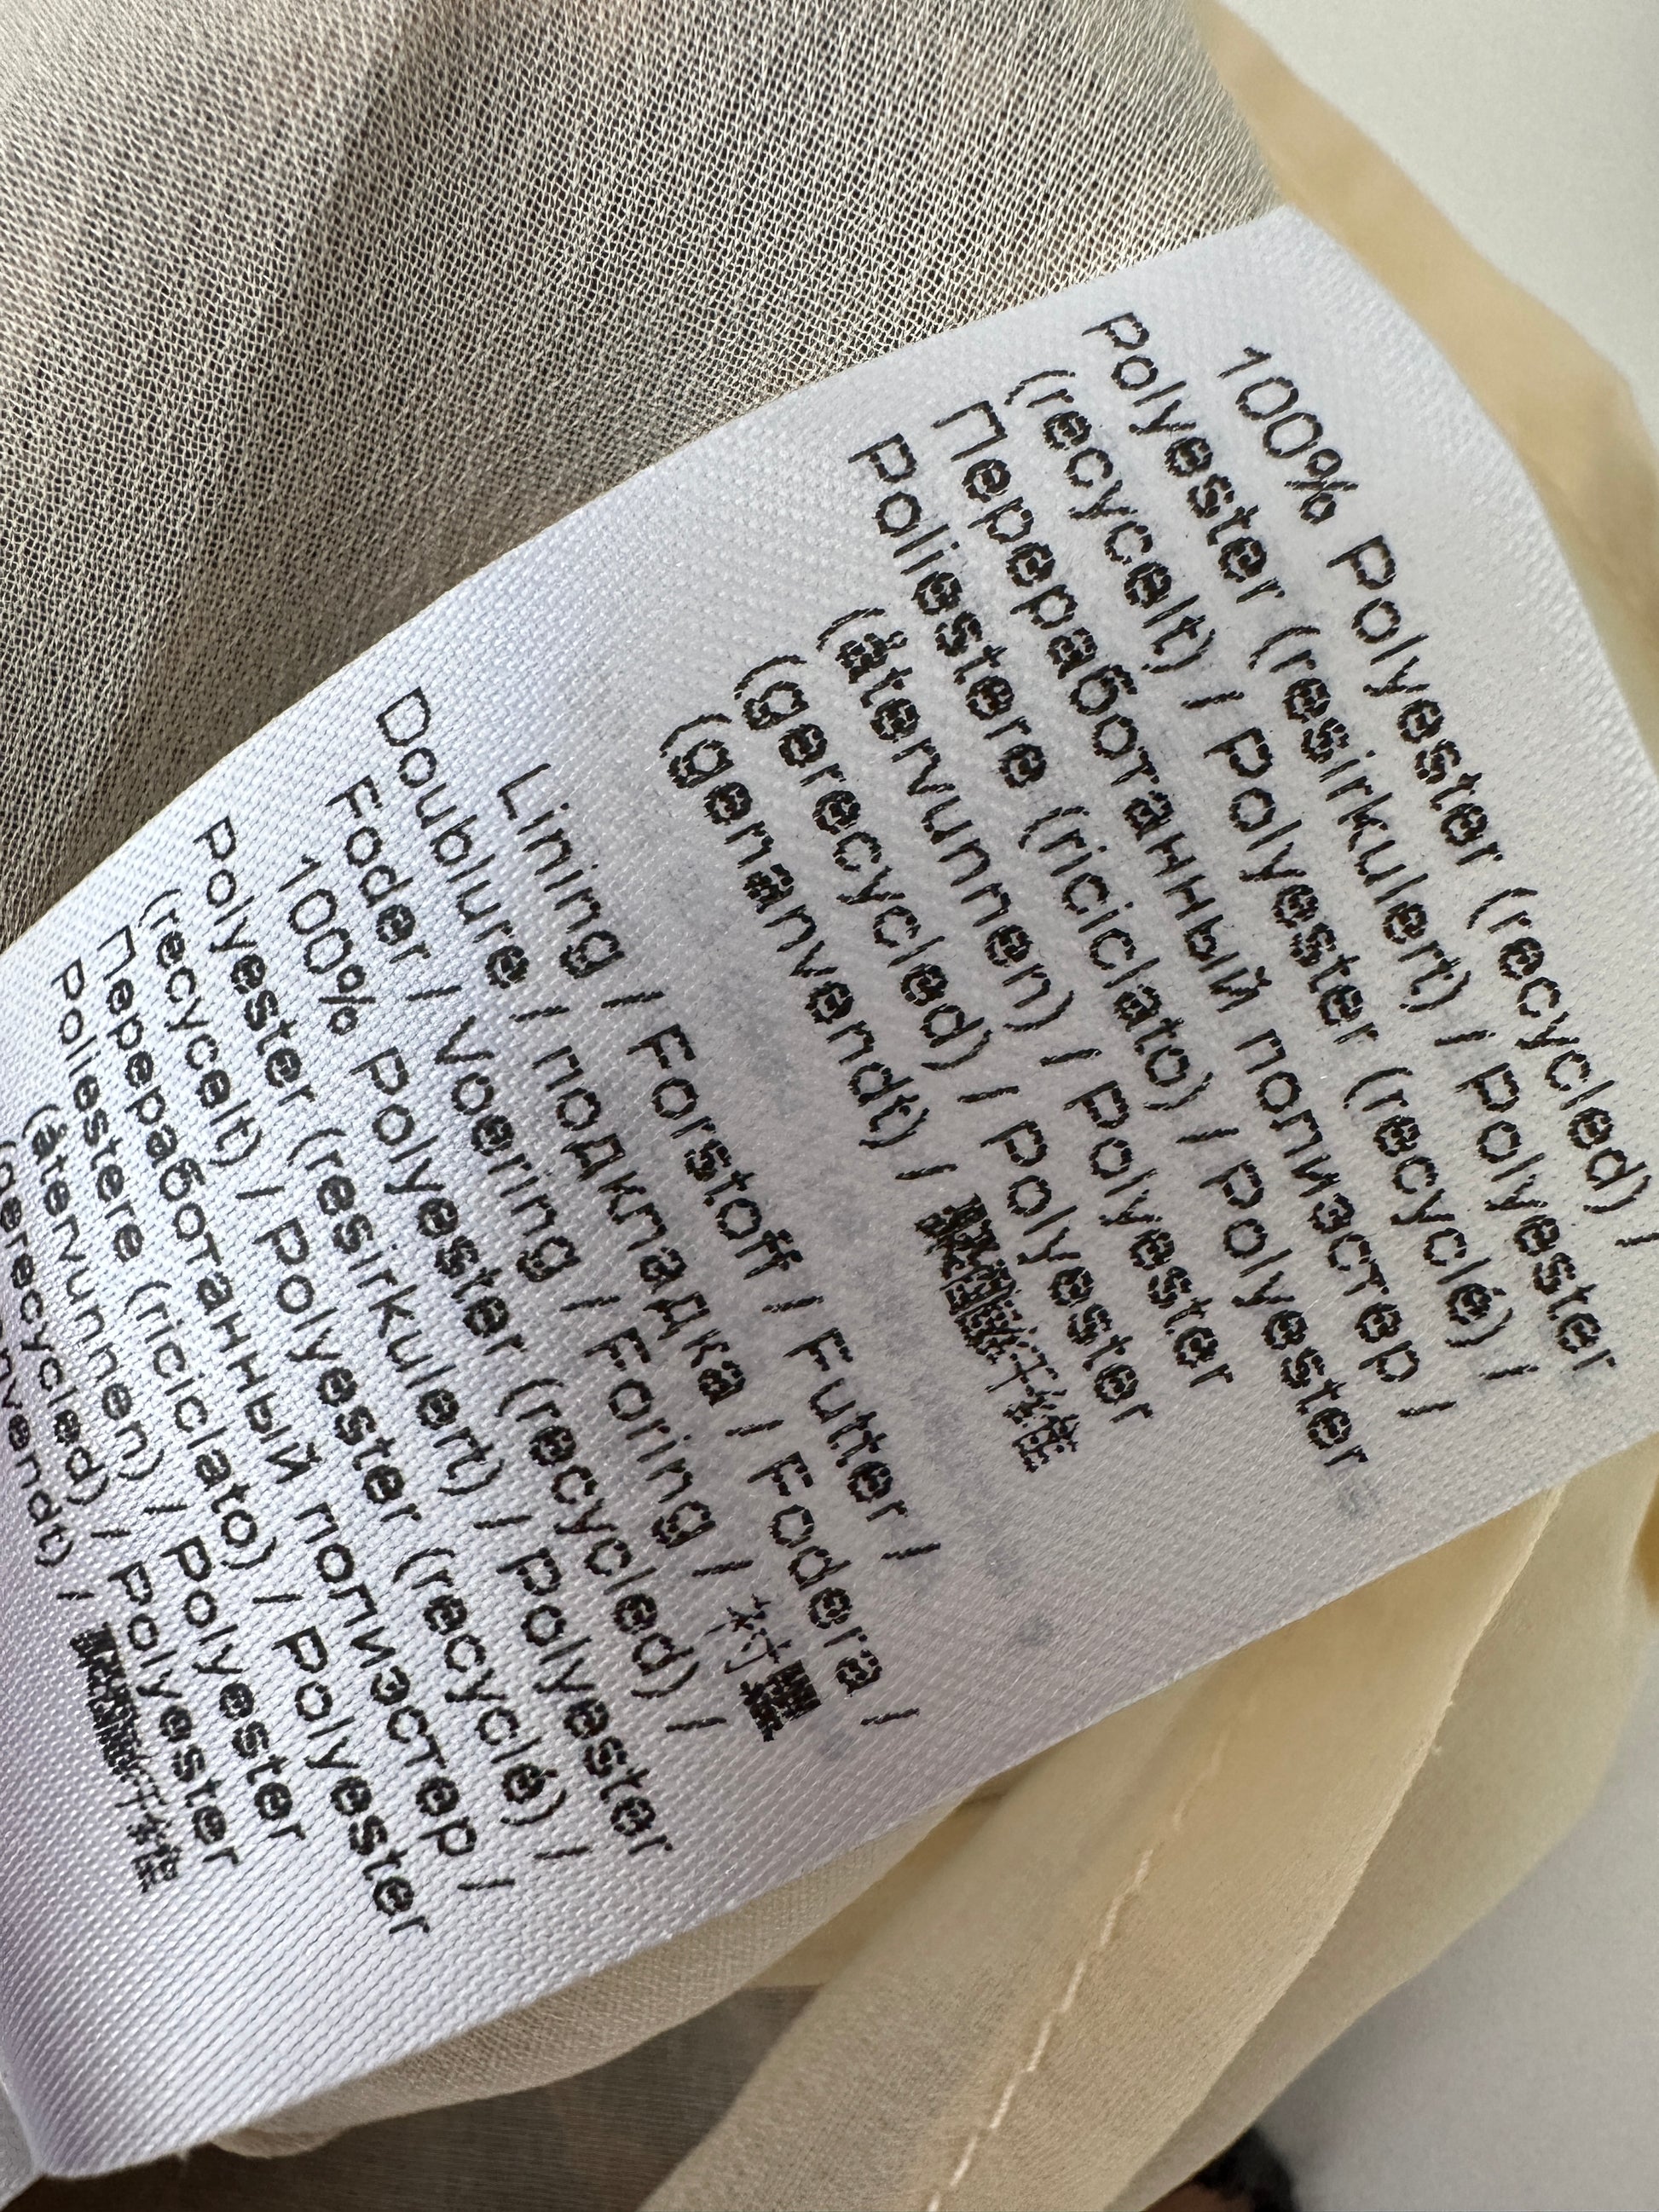 100% Polyester (recycled) /
Polyester (resirkulert) / Polyester
(recycelt) / Polyester (recyclé) /
Переработанный полиэстер /
Poliestere (riciclato) / Polyester
(återvunnen) / Polyester
(gerecycled) / Polyester
(genanvendt) /
Lining / Forstoff / Futter /
Doublure / подкладка / Fodera /
Foder / Voering / Foring / 衬里
100% Polyester (recycled) /
Polyester (resirkulert) / Polyester
(recycelt) / Polyester (recyclé) /
Переработанный полиэстер /
Poliestere (riciclato) / Polyester
(återvunnen) / Polyester
(gerecycled) / Polyester